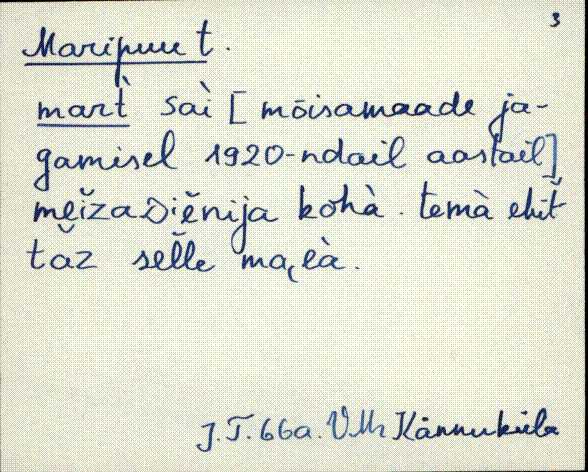 3
Maripuu t.
mart̀ saì [mõisamaade ja-
gamisel 1920-ndail aastail]
kohà. temà ehit̆
tăz sel̆le
J.T. 66a. VMr Kännuküla